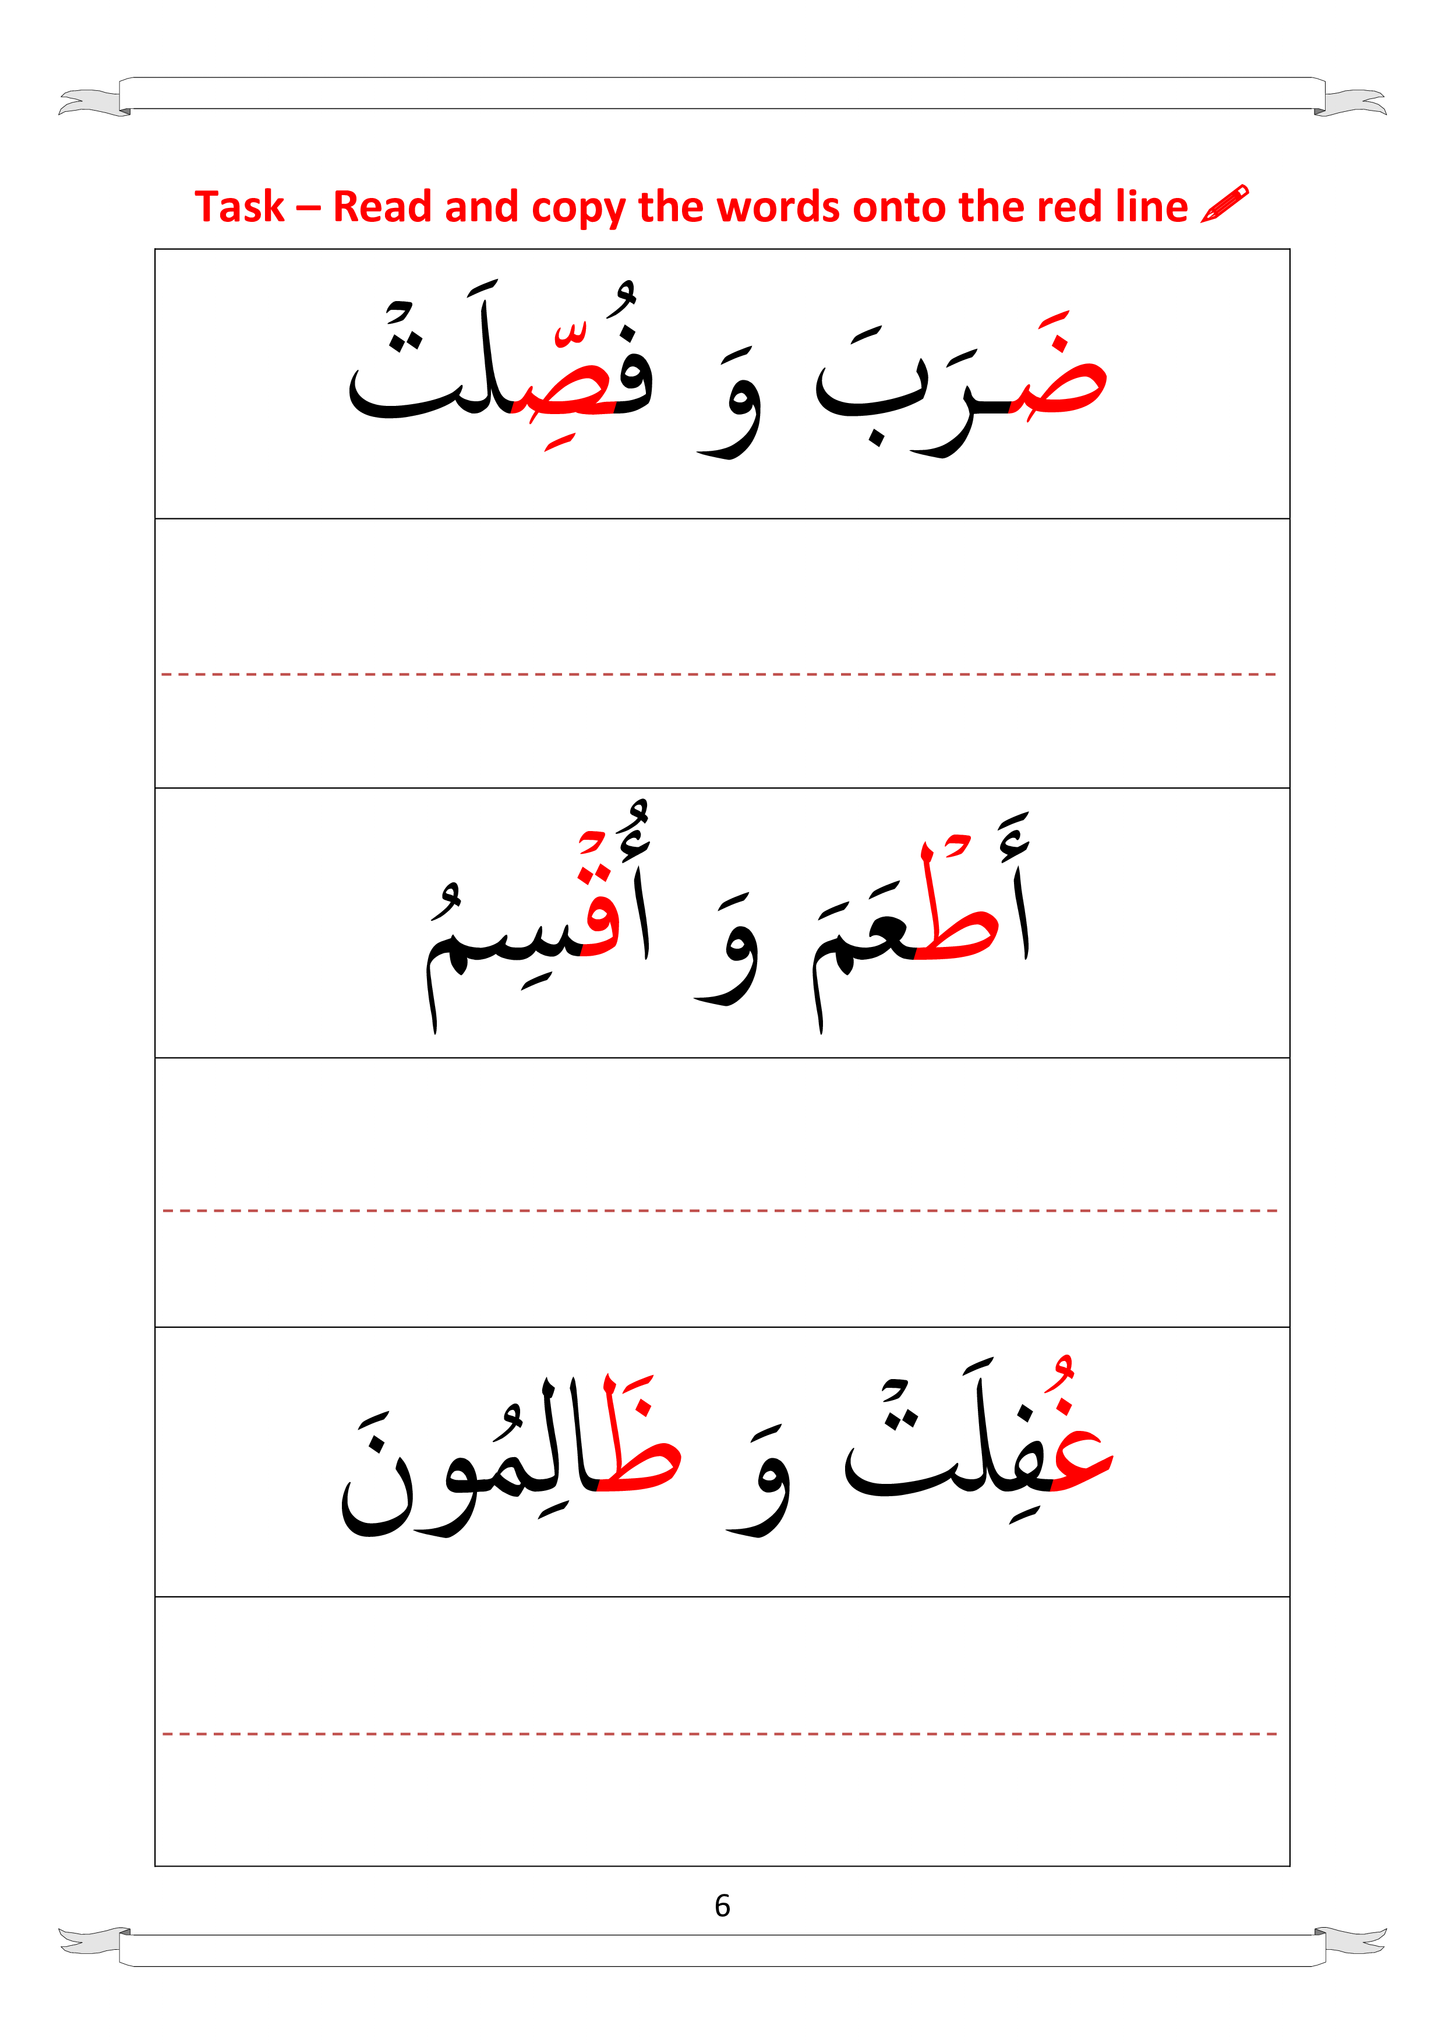 Task – Read and copy the words onto the red line
ضَرَبَ وَ فُصِّلَتْ
أَطْعَمَ وَ أُقْسِمُ
غُفِلَتْ وَ ظَالِمُونَ
6